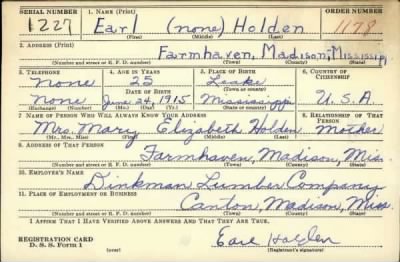 SERIAL NUMBER 1. NAME (Print) ORDER NUMBER
1227 Earl (none) Holden 1178
(First) (Middle) (Last)
2. ADDRESS (Print)
Farmhaven, Madison, Mississippi
(Number and street or R. F. D. number) (Town) (County) (State)
3. TELEPHONE 4. AGE IN YEARS 5. PLACE OF BIRTH 6. COUNTRY OF CITIZENSHIP
None 25 Leake
DATE OF BIRTH (Town or county)
None June 24, 1915 Mississippi U.S.A.
(Exchange) (Number) (Mo.) (Day) (Yr.) (State or country)
7. NAME OF PERSON WHO WILL ALWAYS KNOW YOUR ADDRESS 8. RELATIONSHIP OF THAT PERSON
Mrs. Mary Elizabeth Holden Mother
(Mr., Mrs., Miss) (First) (Middle) (Last)
9. ADDRESS OF THAT PERSON
Farmhaven, Madison, Miss.
(Number and street or R. F. D. number) (Town) (County) (State)
10. EMPLOYER'S NAME
Dinkman Lumber Company
11. PLACE OF EMPLOYMENT OR BUSINESS
Canton, Madison, Miss.
(Number and street or R. F. D. number) (Town) (County) (State)
I AFFIRM THAT I HAVE VERIFIED ABOVE ANSWERS AND THAT THEY ARE TRUE.
REGISTRATION CARD
D. S. S. Form 1 (over) Earl Holden
(Registrant's signature)